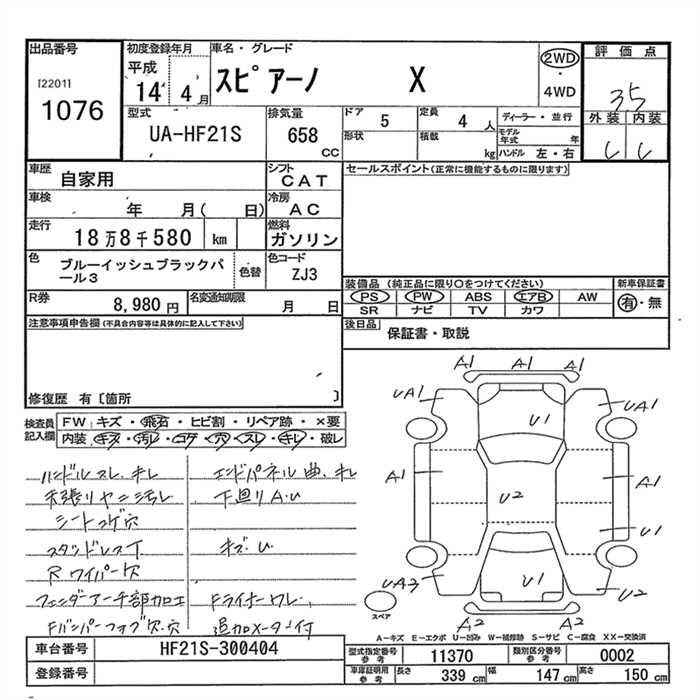 出品番号
[2201]
1076
初度登録年月
平成
14 4 月
車名・グレード
スピアーノ X
2WD
・
4WD
評価点
35
外装 内装
型式
UA-HF21S
排気量
658
cc
ドア 5
形状
定員 4 人
積載 kg
ディーラー・並行
モデル年式 年
ハンドル 左・右
車歴
自家用
シフト
CAT
車検
年 月( 日)
冷房
AC
走行
18万8千580 km
燃料
ガソリン
色
ブルーイッシュブラックパール3
色替
色コード
ZJ3
R券
8,980円
名変通知期限
月 日
セールスポイント(正常に機能するものに限ります)
装備品 (純正品に限り○をつけてください)
PS PW ABS エアB AW
SR ナビ TV カワ
新車保証書
有・無
後日品
保証書・取説
注意事項申告欄(不具合内容等は具体的に記入して下さい)
修復歴 有〔箇所 〕
検査員記入欄
FW キズ・飛石・ヒビ割・リペア跡・×要
内装 キズ・汚レ・コゲ・穴・スレ・キレ・破レ
ハンドルスレ、キレ
天張リヤニ汚レ
シートコゲ穴
スタッドレスT
Rワイパー欠
フェンダーアーチ部加工
Fバンパーフォグ欠、穴
エンドパネル曲、キレ
下廻りA、U
キズ、U
Fライナーワレ、
追加メーター付
A1 A1 A2
UA1 U1 UA1
A1 U2 A1
U1
UA3 U1 UA2
A2 A2
スペア
A-キズ E-エクボ U-凹み W-補修跡 S-サビ C-腐食 XX-交換済
車台番号
HF21S-300404
登録番号
型式指定番号 参考
11370
類別区分番号 参考
0002
車庫証明用 参考
長さ 339 cm
幅 147 cm
高さ 150 cm